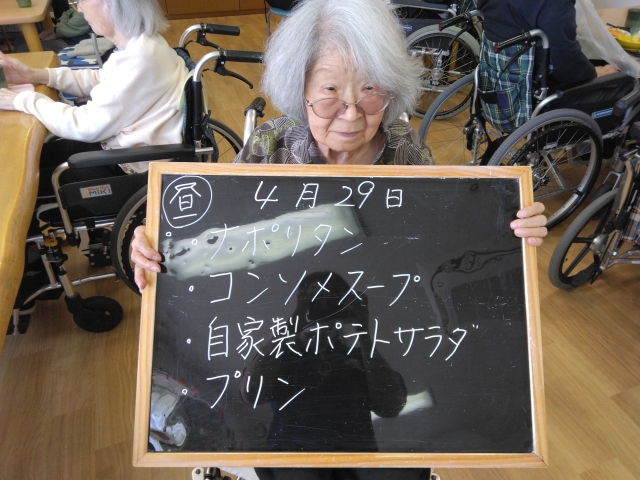 昼 4月29日
・ナポリタン
・コンソメスープ
・自家製ポテトサラダ
・プリン
MIKI